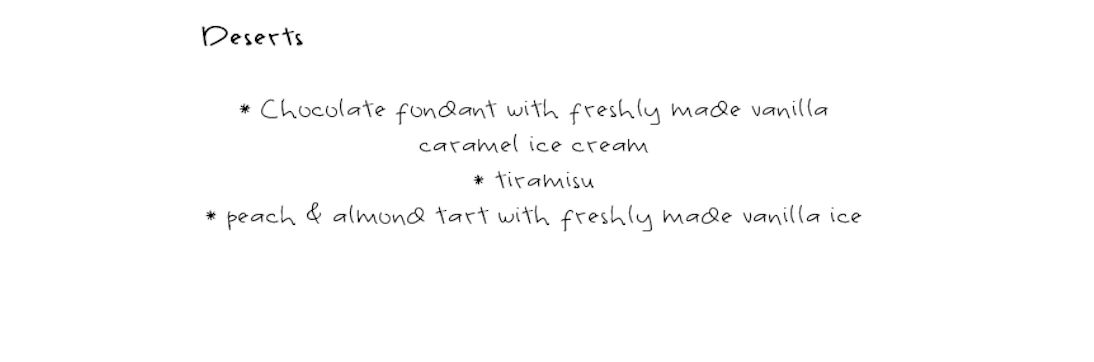 Deserts
* Chocolate fondant with freshly made vanilla
caramel ice cream
* tiramisu
* peach & almond tart with freshly made vanilla ice